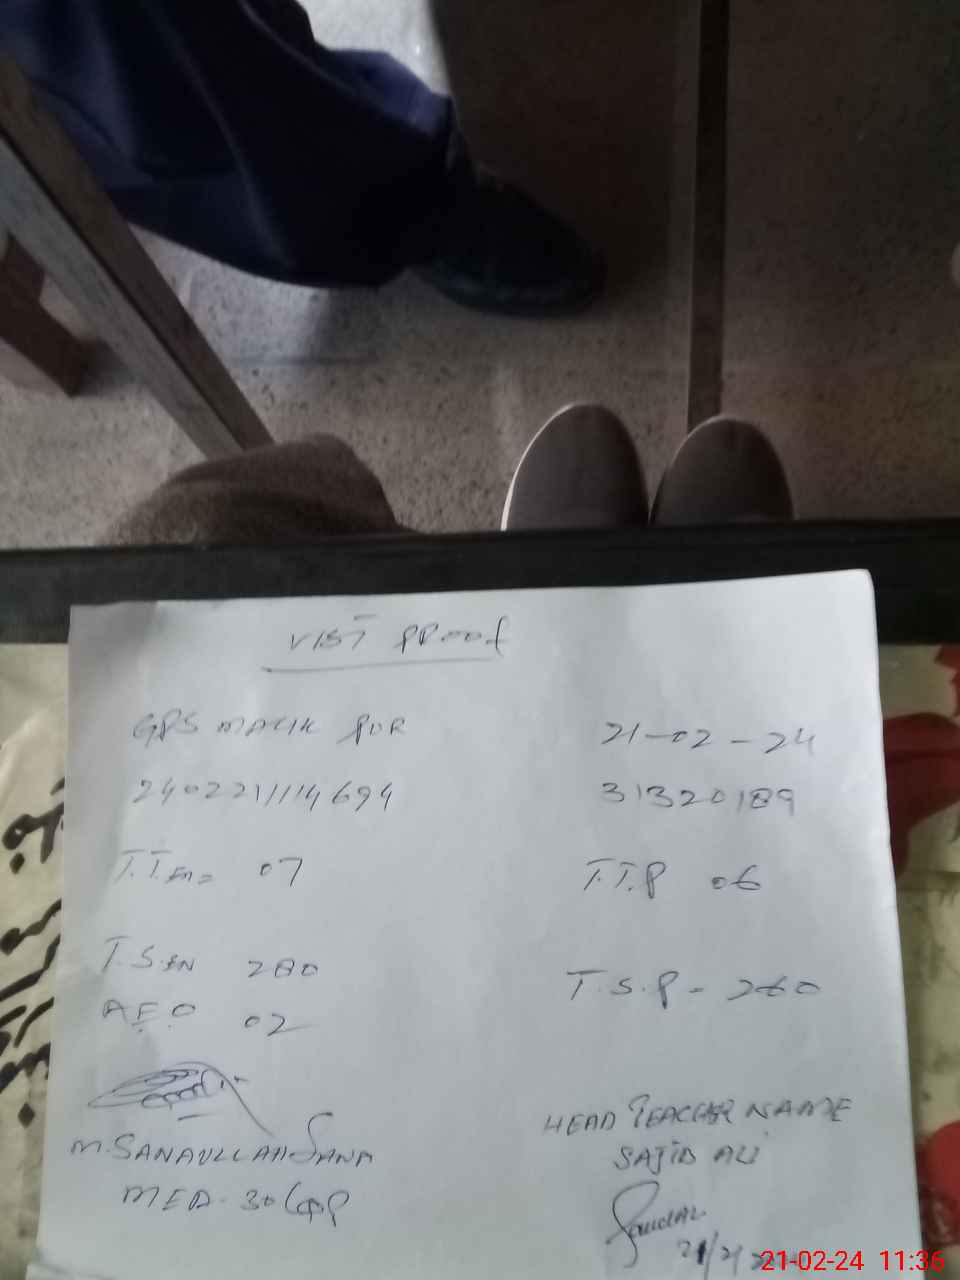 VISIT PROOF
GPS MALIK PUR 21-02-24
2402211114694 31320189
T.T.En= 07 T.T.P 06
T.S.EN 280
T.S.P - 260
A.E.O 02
HEAD TEACHER NAME
M.SANAULLAH SANA
SAJID ALI
MEA-30
21-02-24 11:36